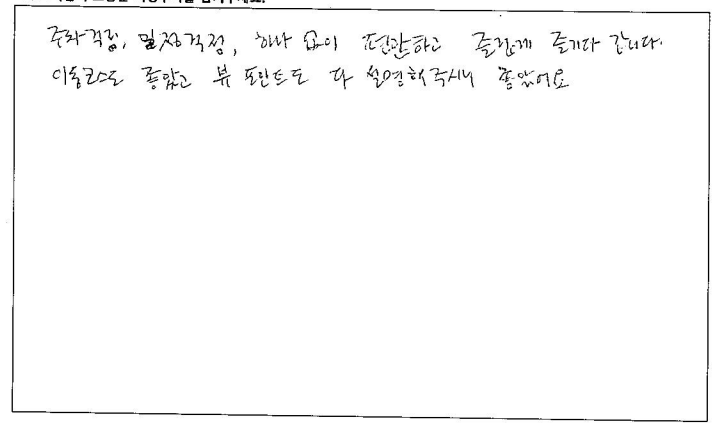 주차걱정, 일정걱정, 하나 없이 편안하고 즐겁게 즐기다 갑니다.
이동코스도 좋았고 뷰 포인트도 다 설명해주시니 좋았어요